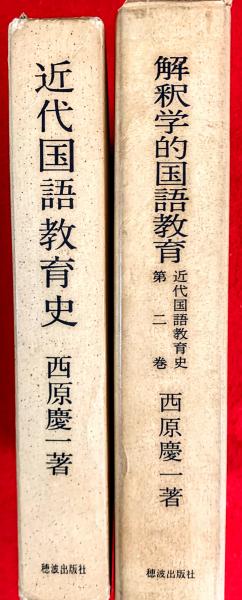 近代国語教育史
西原慶一著
穂波出版社
解釈学的国語教育
近代国語教育史
第二巻
西原慶一著
穂波出版社